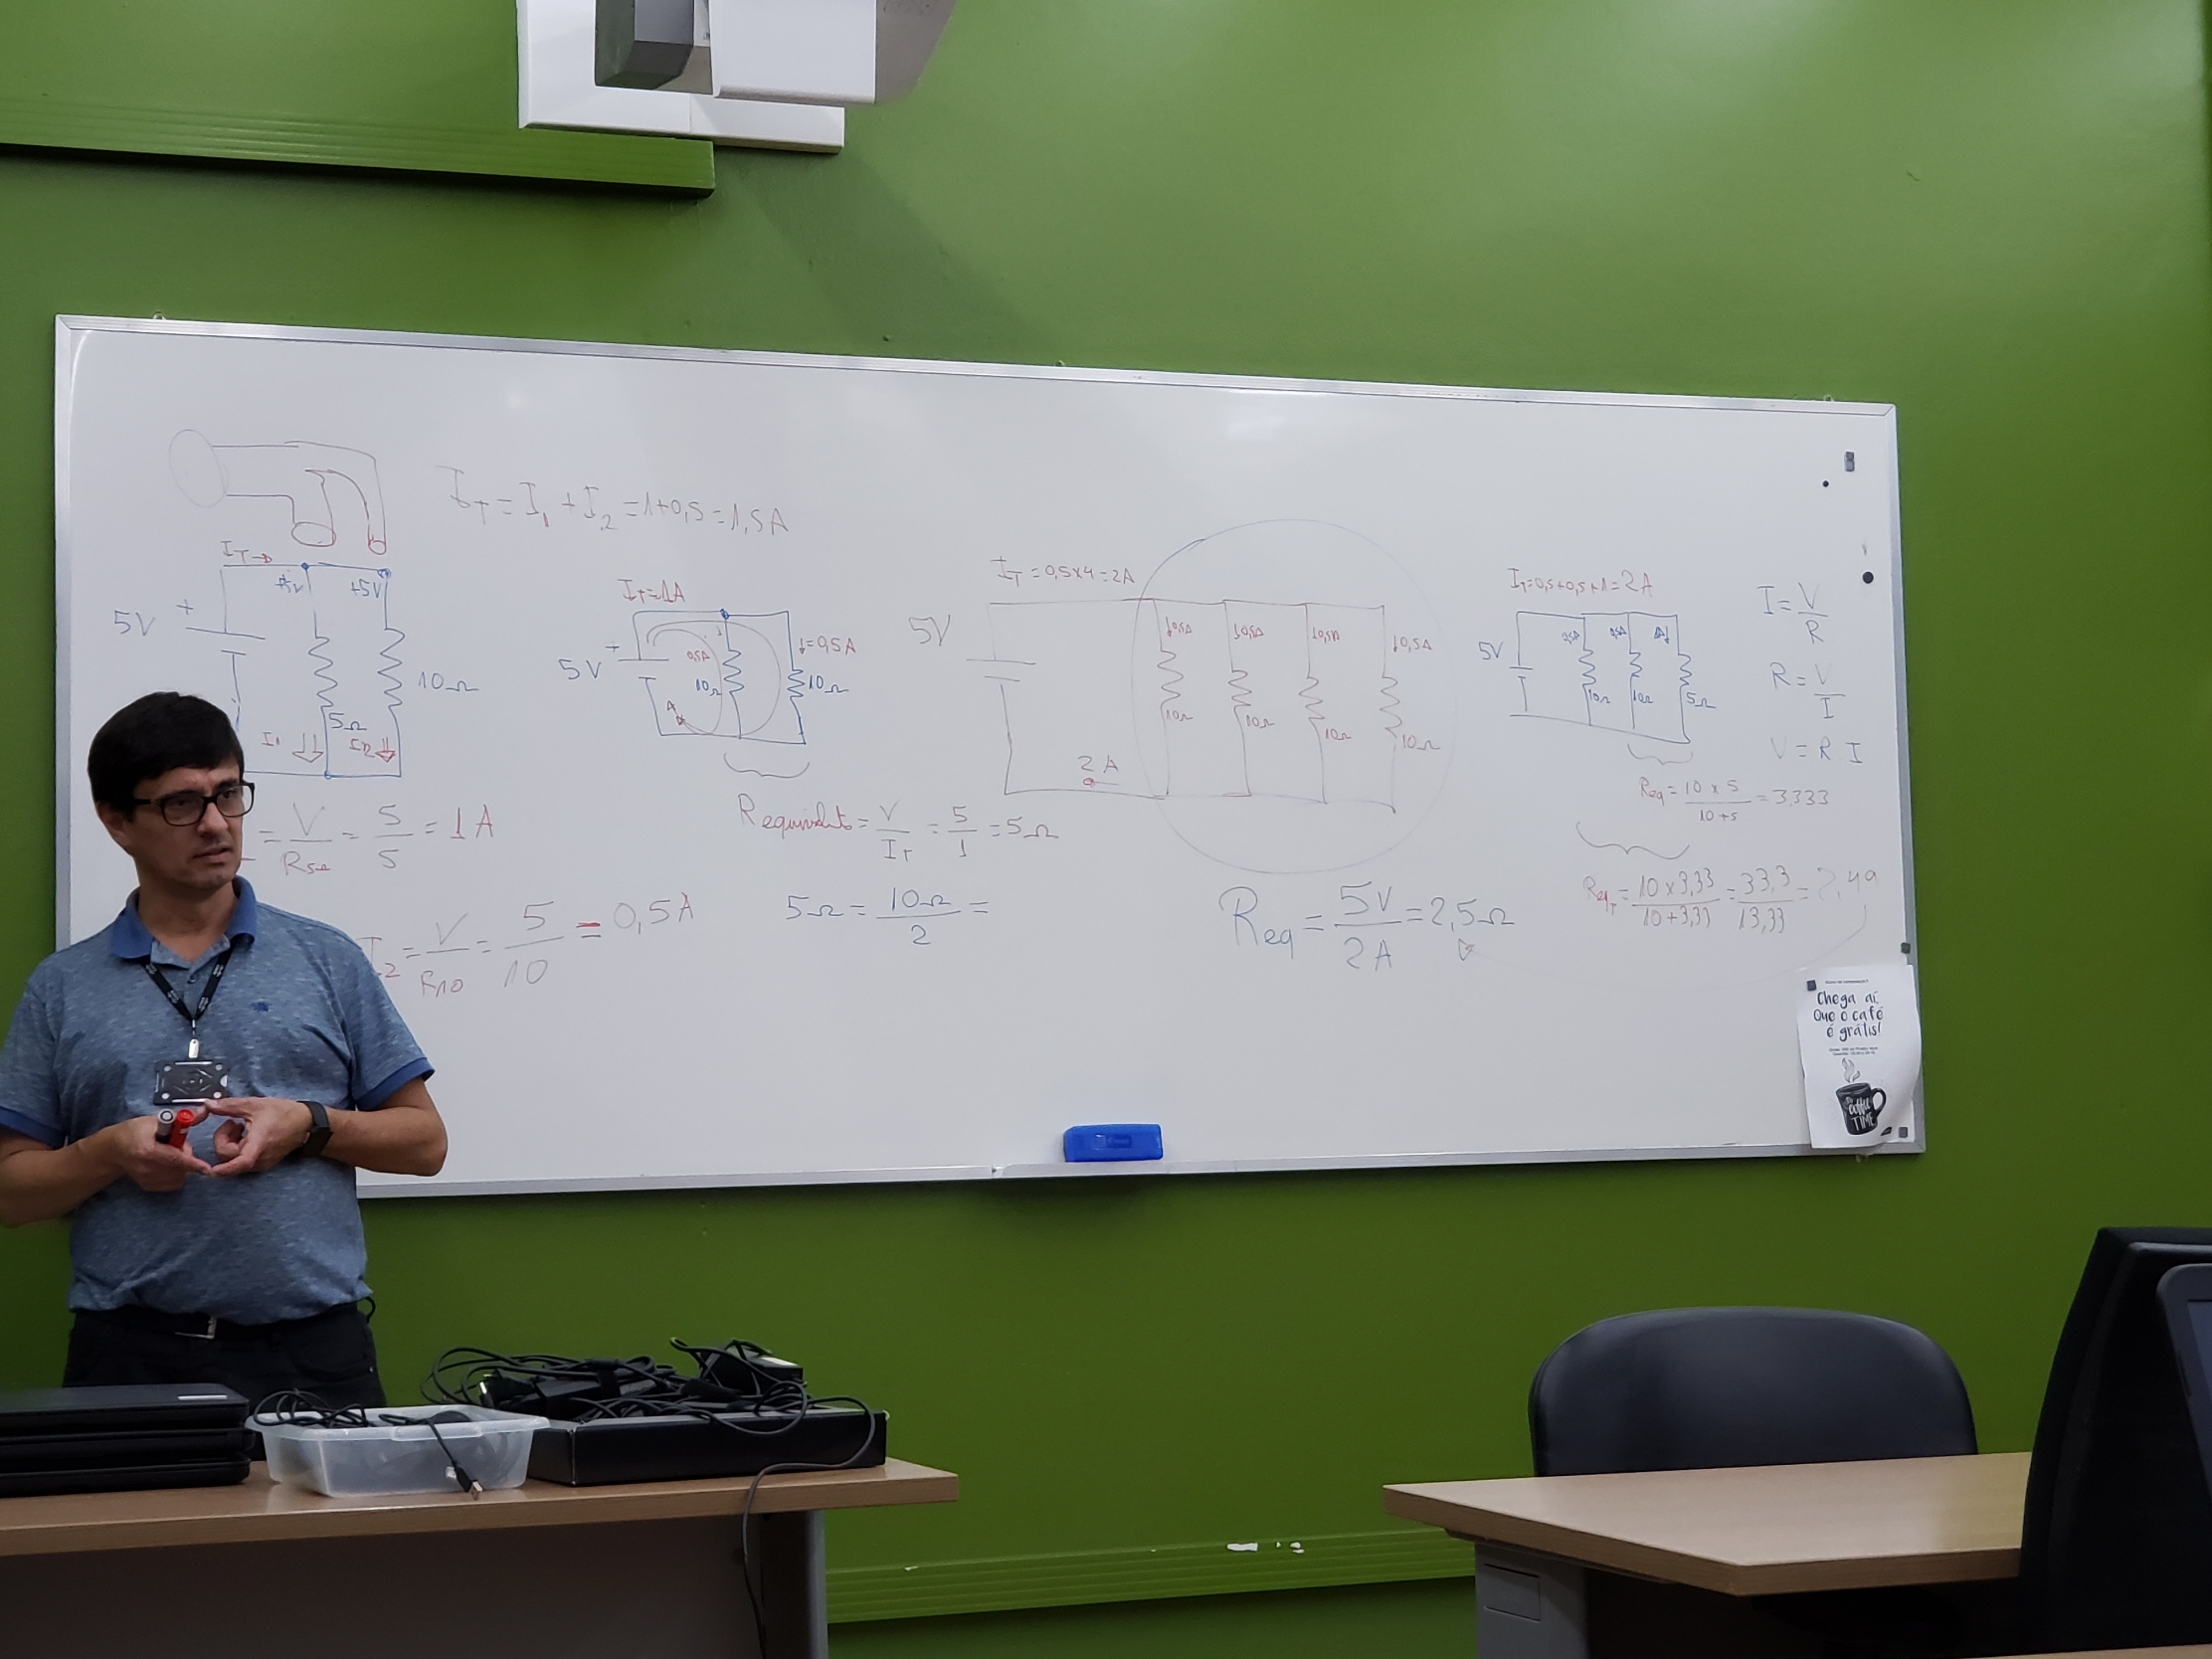 I_T = I_1 + I_2 = 1+0,5 = 1,5A
I_T →
+5V
+5V
5V
+
10Ω
5Ω
I1
I2
= V/R5Ω = 5/5 = 1A
I2 = V/R10 = 5/10 = 0,5A
I_T=1A
5V
+
0,5A
10Ω
I=0,5A
10Ω
Requivalente = V/I_T = 5/1 = 5Ω
5Ω = 10Ω/2 =
I_T = 0,5x4 = 2A
5V
0,5A
0,5A
0,5A
0,5A
10Ω
10Ω
10Ω
10Ω
2A
Req = 5V/2A = 2,5Ω
I_T=0,5+0,5+1=2A
5V
0,5A
0,5A
1A
10Ω
10Ω
5Ω
Req = 10 x 5/10+5 = 3,333
Req_T = 10 x 3,33/10+3,33 = 33,3/13,33 = 2,49
I = V/R
R = V/I
V = R . I
Chega aí,
Que o café
é grátis!
coffee
TIME